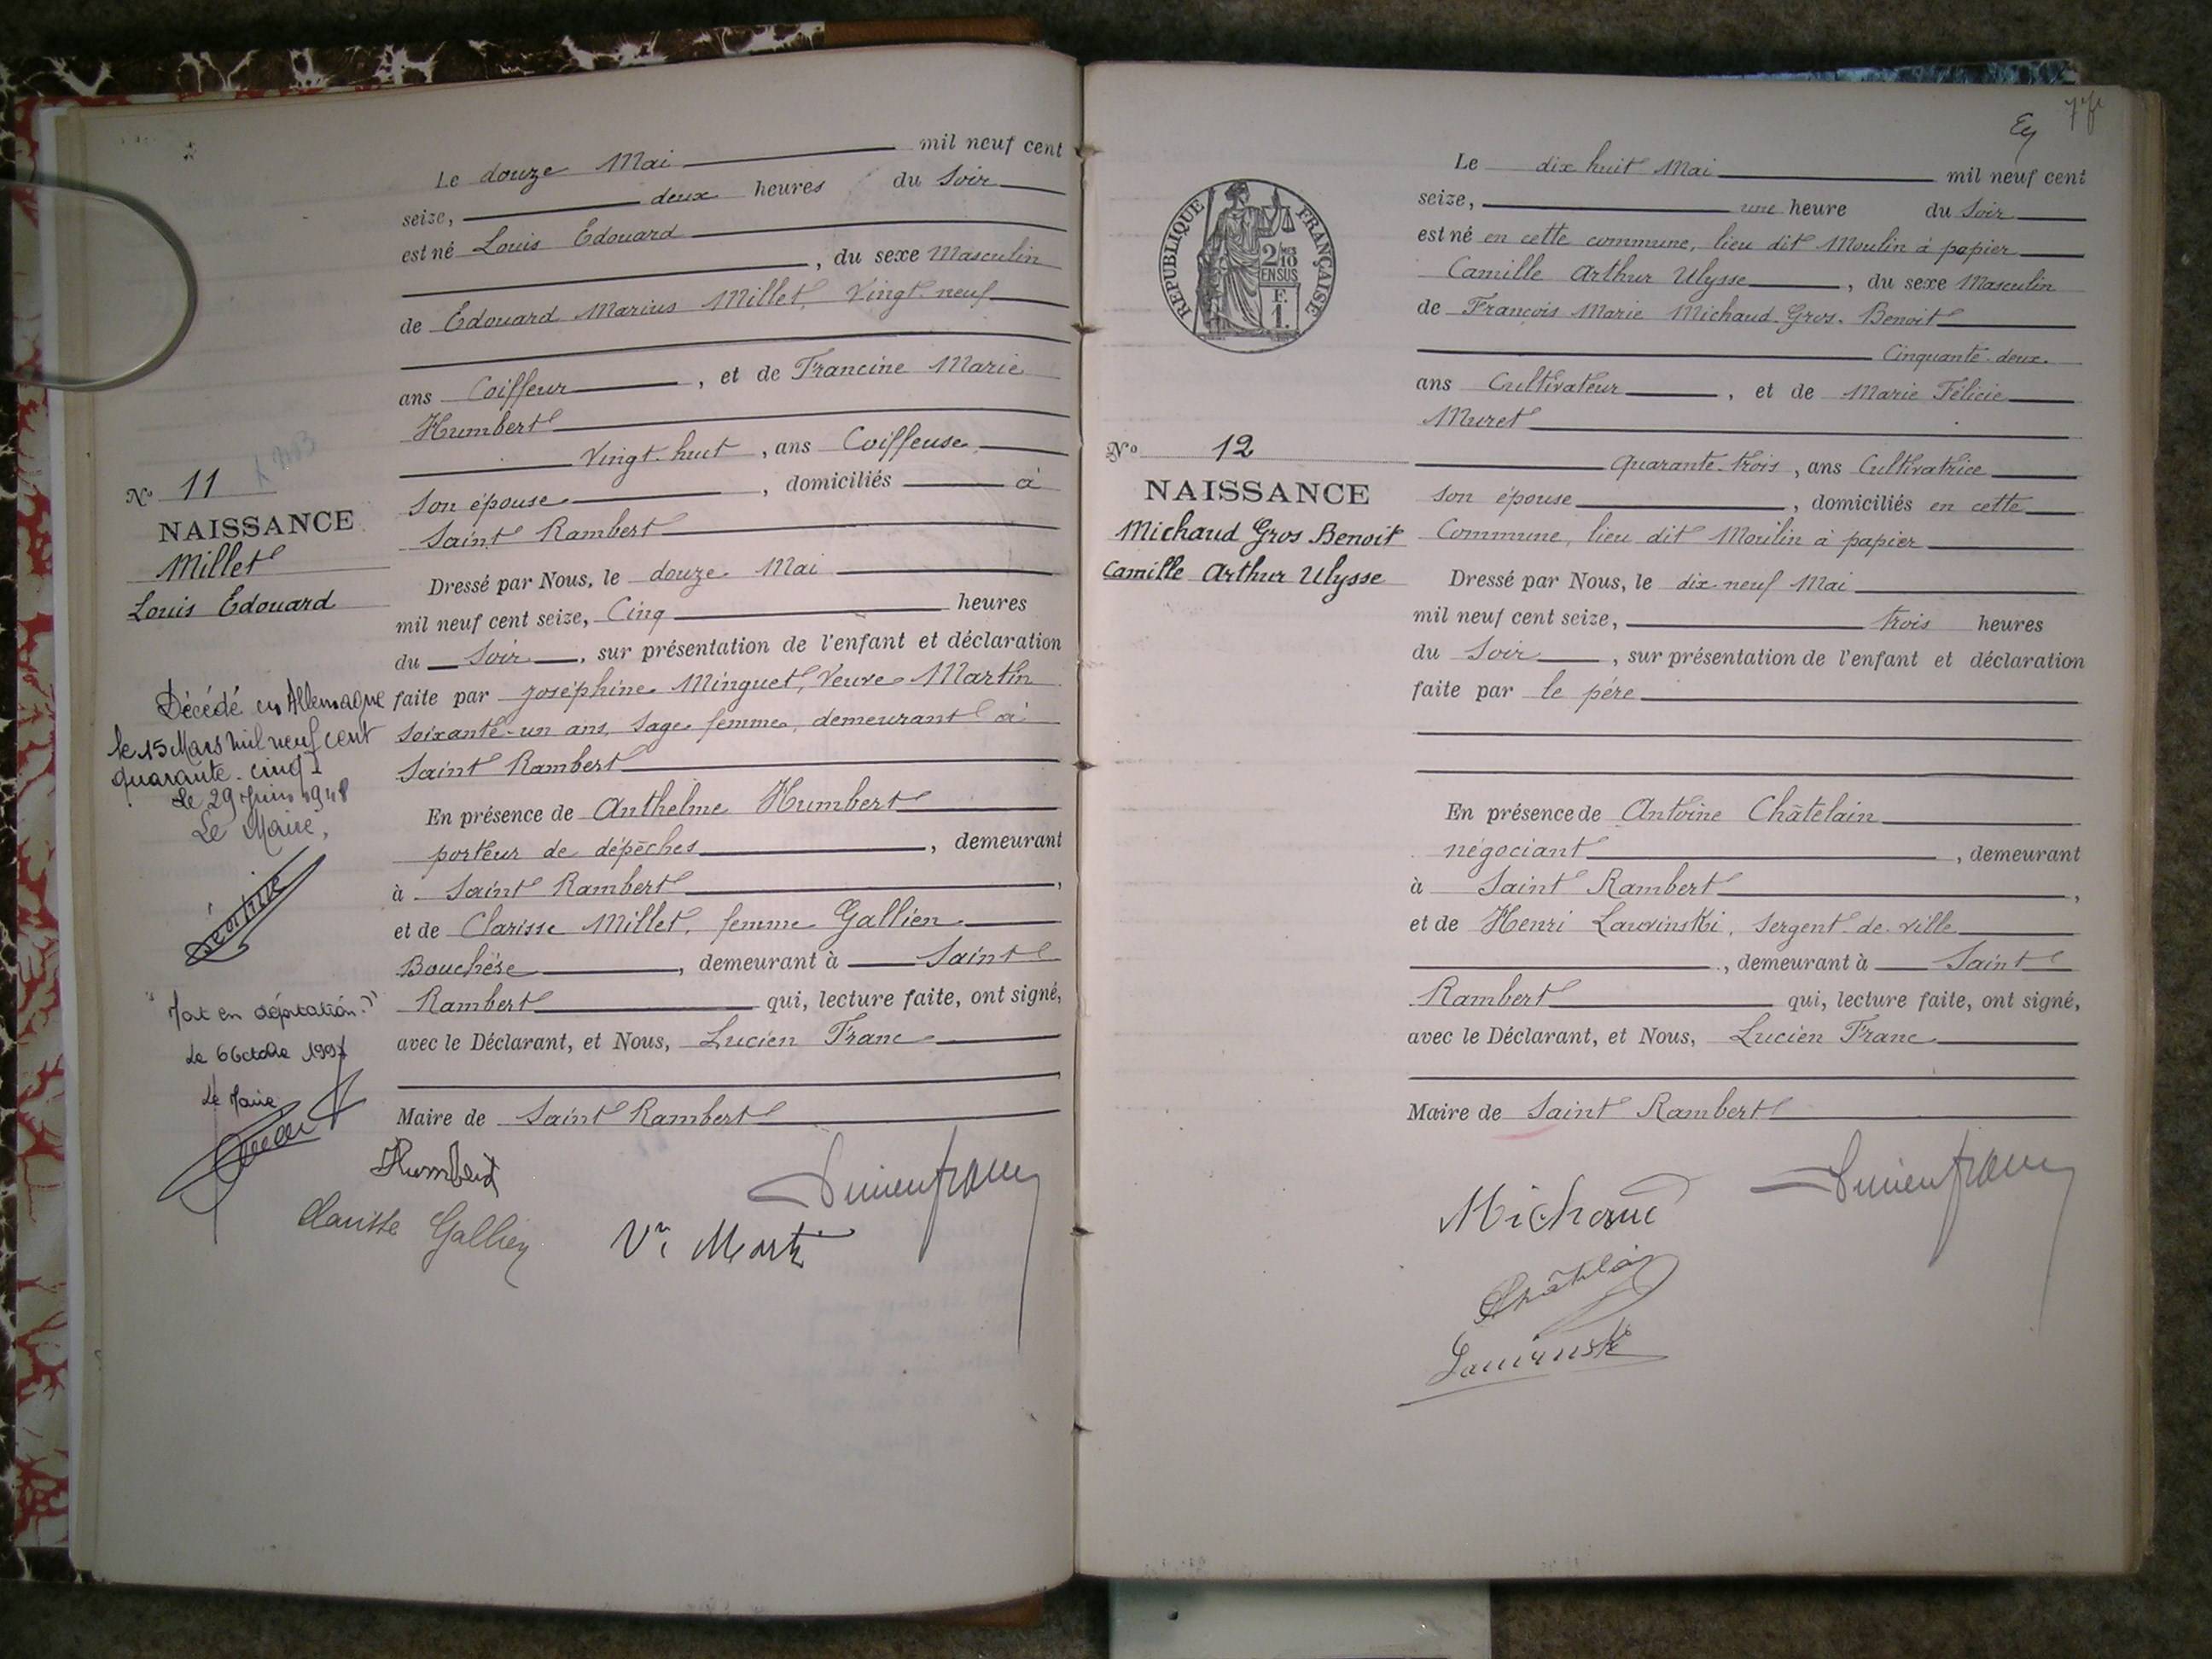 Le douze Mai mil neuf cent
seize, deux heures du Soir
est né Louis Edouard
, du sexe Masculin
de Edouard Marius Millet, Vingt-neuf
ans Coiffeur, et de Francine Marie
Humbert
Vingt-huit, ans Coiffeuse
Son épouse, domiciliés à
Saint Rambert
Dressé par Nous, le douze Mai
mil neuf cent seize, Cinq heures
du Soir, sur présentation de l'enfant et déclaration
faite par Joséphine Minguet, Veuve Martin
Soixante-un ans, Sage femme, demeurant à
Saint Rambert
En présence de Anthelme Humbert
porteur de dépêches, demeurant
à Saint Rambert,
et de Clarisse Millet, femme Gallien
Bouchère, demeurant à Saint
Rambert qui, lecture faite, ont signé,
avec le Déclarant, et Nous, Lucien Franc
Maire de Saint Rambert
Humbert
Clarisse Gallien
Vve Martin
Lucien Franc
No 11
NAISSANCE
Millet
Louis Edouard
Décédé en Allemagne
le 15 Mars mil neuf cent
quarante-cinq
Le 29 Juin 1948
Le Maire,
"Mort en déportation"
Le 6 Octobre 1997
Le Maire
Ey
RÉPUBLIQUE FRANÇAISE
2/10
EN SUS
F.
1.
No 12
NAISSANCE
Michaud Gros Benoit
Camille Arthur Ulysse
Le dix huit Mai mil neuf cent
seize, une heure du Soir
est né en cette commune, lieu dit Moulin à papier
Camille Arthur Ulysse, du sexe Masculin
de François Marie Michaud-Gros-Benoit
Cinquante-deux
ans Cultivateur, et de Marie Félicie
Muret
Quarante-trois, ans Cultivatrice
Son épouse, domiciliés en cette
Commune, lieu dit Moulin à papier
Dressé par Nous, le dix-neuf Mai
mil neuf cent seize, trois heures
du Soir, sur présentation de l'enfant et déclaration
faite par le père
En présence de Antoine Châtelain
négociant, demeurant
à Saint Rambert,
et de Henri Lawinski, Sergent de ville
, demeurant à Saint
Rambert qui, lecture faite, ont signé,
avec le Déclarant, et Nous, Lucien Franc
Maire de Saint Rambert
Michaud
Lucien Franc
Châtelain
Lawinski